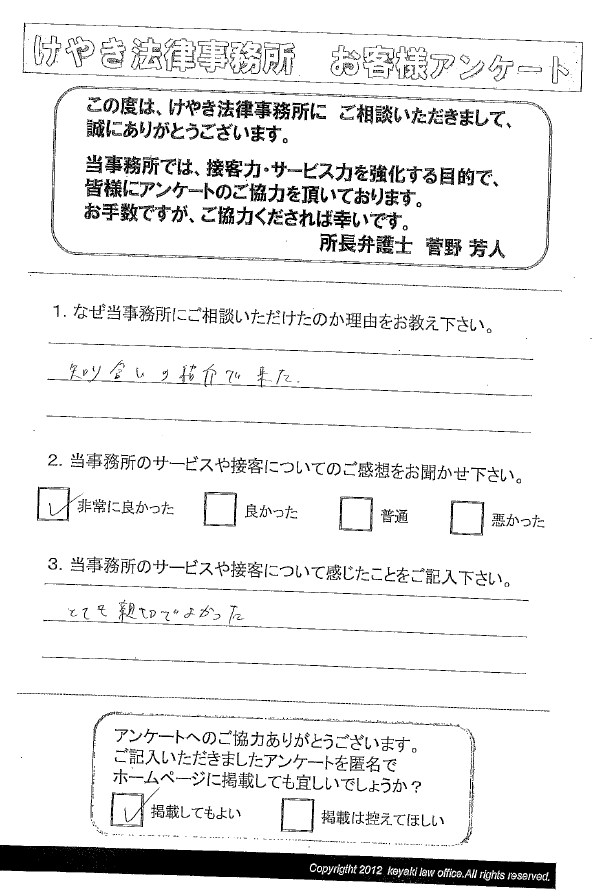 けやき法律事務所 お客様アンケート
この度は、けやき法律事務所に ご相談いただきまして、
誠にありがとうございます。
当事務所では、接客力・サービス力を強化する目的で、
皆様にアンケートのご協力を頂いております。
お手数ですが、ご協力くだされば幸いです。
所長弁護士 菅野 芳人
1. なぜ当事務所にご相談いただけたのか理由をお教え下さい。
知り合いの紹介で来た.
2. 当事務所のサービスや接客についてのご感想をお聞かせ下さい。
非常に良かった 良かった 普通 悪かった
3. 当事務所のサービスや接客について感じたことをご記入下さい。
とても親切でよかった
アンケートへのご協力ありがとうございます。
ご記入いただきましたアンケートを匿名で
ホームページに掲載しても宜しいでしょうか？
掲載してもよい 掲載は控えてほしい
Copyrigtht 2012 keyaki law office.All rights reserved.